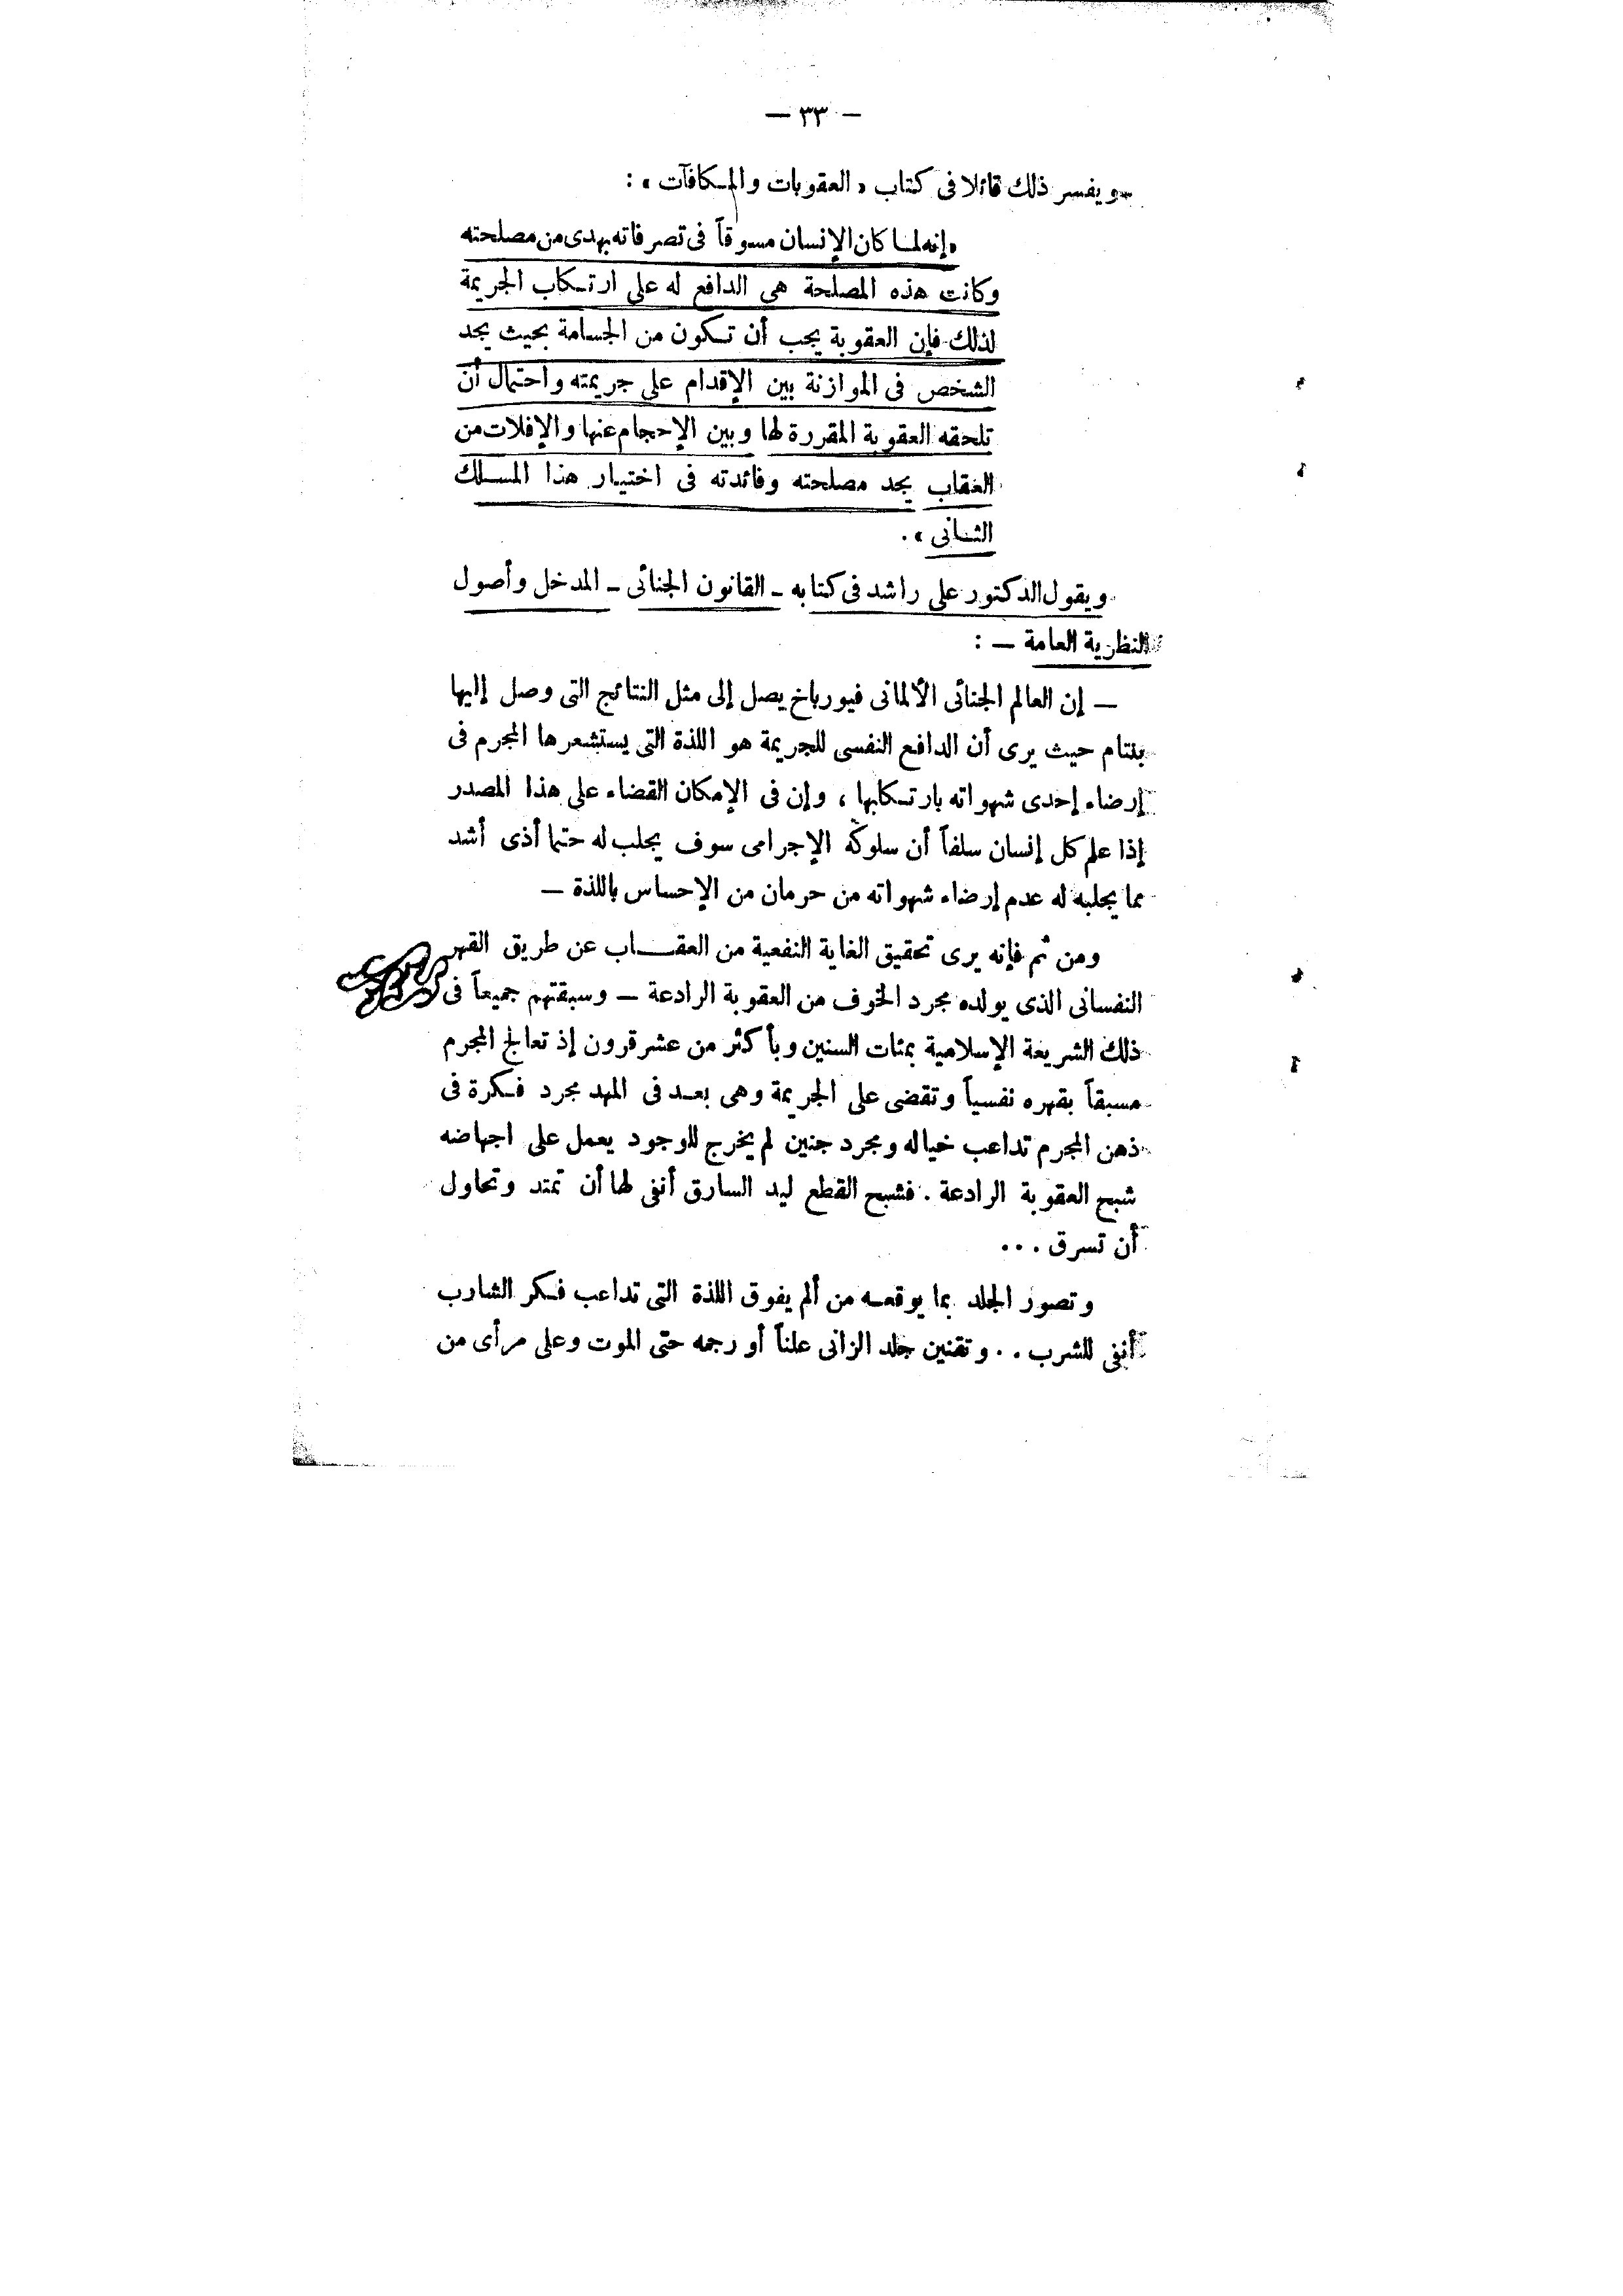 — ٣٣ —
ويفسر ذلك قائلا فى كتاب « العقوبات والمكافآت » :
« إنه لما كان الإنسان مسوقاً فى تصرفاته بهدى من مصلحته
وكانت هذه المصلحة هى الدافع له على ارتكاب الجريمة
لذلك فإن العقوبة يجب أن تكون من الجسامة بحيث يجد
الشخص فى الموازنة بين الإقدام على جريمته واحتمال أن
تلحقه العقوبة المقررة لها وبين الإحجام عنها والإفلات من
العقاب يجد مصلحته وفائدته فى اختيار هذا المسلك
الثانى » .
ويقول الدكتور على راشد فى كتابه ـ القانون الجنائى ـ المدخل وأصول
النظرية العامة — :
— إن العالم الجنائى الألمانى فيورباخ يصل إلى مثل النتائج التى وصل إليها
بنتام حيث يرى أن الدافع النفسى للجريمة هو اللذة التى يستشعرها المجرم فى
إرضاء إحدى شهواته بارتكابها ، وإن فى الإمكان القضاء على هذا المصدر
إذا علم كل إنسان سلفاً أن سلوكه الإجرامى سوف يجلب له حتما أذى أشد
مما يجلبه له عدم إرضاء شهواته من حرمان من الإحساس باللذة —
ومن ثم فإنه يرى تحقيق الغاية النفعية من العقاب عن طريق القهر
النفسانى الذى يولده مجرد الخوف من العقوبة الرادعة — وسبقتهم جميعاً فى
ذلك الشريعة الإسلامية بمئات السنين وبأكثر من عشر قرون إذ تعالج المجرم
مسبقاً بقهره نفسياً وتقضى على الجريمة وهى بعد فى المهد مجرد فكرة فى
ذهن المجرم تداعب خياله ومجرد جنين لم يخرج للوجود يعمل على اجهاضه
شبح العقوبة الرادعة . فشبح القطع ليد السارق أنفى لها أن تمتد وتحاول
أن تسرق . . .
وتصور الجلد بما يوقعه من ألم يفوق اللذة التى تداعب فكر الشارب
أنفى للشرب . . وتقنين جلد الزانى علناً أو رجمه حتى الموت وعلى مرأى من